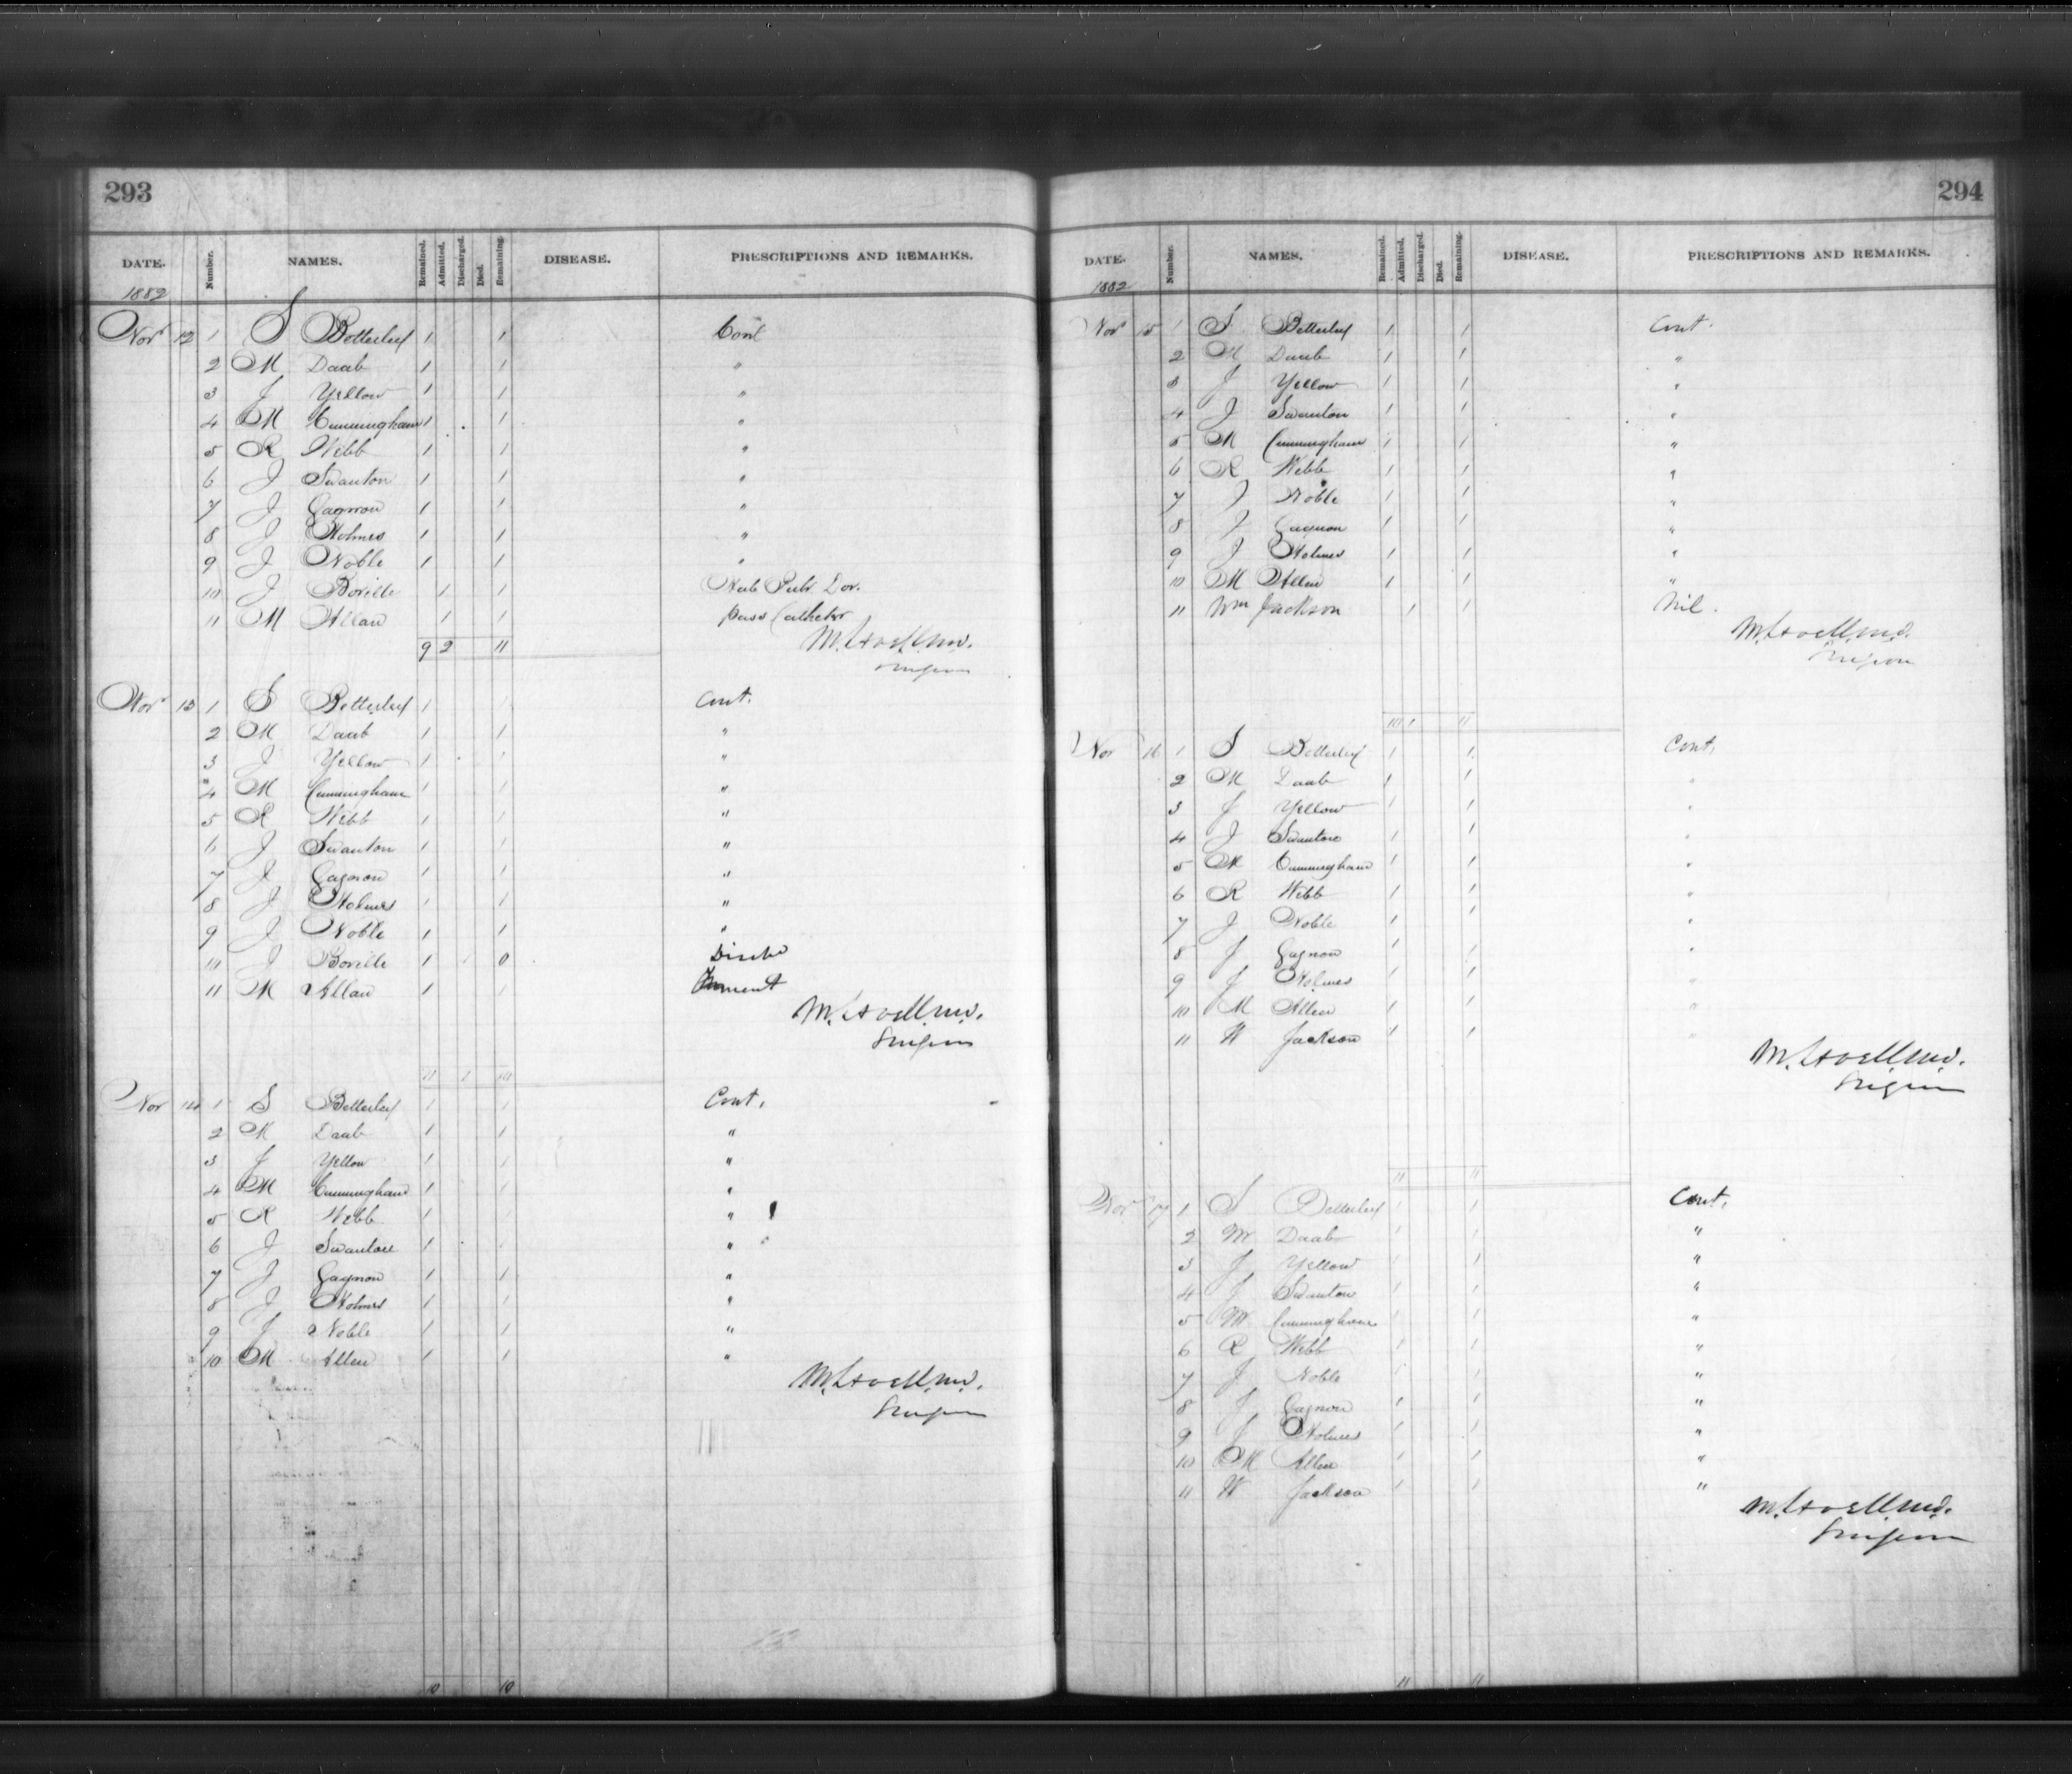 293
DATE. Number. NAMES. Remained. Admitted. Discharged. Died. Remaining. DISEASE. PRESCRIPTIONS AND REMARKS.
1882
Nov 12 1 S Botterley 1 1 Cont
2 M Daab 1 1 "
3 J Yellow 1 1 "
4 M Cunningham 1 1 "
5 R Webb 1 1 "
6 J Swanton 1 1 "
7 J Gagnon 1 1 "
8 J Holmes 1 1 "
9 J Noble 1 1 "
10 J Boville 1 1 Pulv. Dov.
11 M Allan 1 1 pass Catheter
9 2 11
Surgeon
Nov 13 1 S Betterley 1 1 Cont.
2 M Daab 1 1 "
3 J Yellow 1 1 "
4 M Cunningham 1 1 "
5 R Webb 1 1 "
6 J Swanton 1 1 "
7 J Gagnon 1 1 "
8 J Holmes 1 1 "
9 J Noble 1 1 "
10 J Boville 1 1 0
11 M Allan 1 1
Surgeon
11 1 10
Nov 14 1 S Betterley 1 1 Cont.
2 M Daab 1 1 "
3 J Yellow 1 1 "
4 M Cunningham 1 1 "
5 R Webb 1 1 "
6 J Swanton 1 1 "
7 J Gagnon 1 1 "
8 J Holmes 1 1 "
9 J Noble 1 1 "
10 M Allen 1 1 "
Surgeon
10 10
294
DATE. Number. NAMES. Remained. Admitted. Discharged. Died. Remaining. DISEASE. PRESCRIPTIONS AND REMARKS.
1882
Nov 15 1 S Betterley 1 1 Cont.
2 M Daab 1 1 "
3 J Yellow 1 1 "
4 J Swanton 1 1 "
5 M Cunningham 1 1 "
6 R Webb 1 1 "
7 J Noble 1 1 "
8 J Gagnon 1 1 "
9 J Holmes 1 1 "
10 M Allen 1 1 "
11 Wm Jackson 1 1 Nil.
Surgeon
10 1 11
Nov 16 1 S Betterley 1 1 Cont.
2 M Daab 1 1 "
3 J Yellow 1 1 "
4 J Swanton 1 1 "
5 M Cunningham 1 1 "
6 R Webb 1 1 "
7 J Noble 1 1 "
8 J Gagnon 1 1 "
9 J Holmes 1 1 "
10 M Allen 1 1 "
11 W Jackson 1 1 "
Surgeon
11 11
Nov 17 1 S Betterley 1 1 Cont.
2 M Daab 1 1 "
3 J Yellow 1 1 "
4 J Swanton 1 1 "
5 M Cunningham 1 1 "
6 R Webb 1 1 "
7 J Noble 1 1 "
8 J Gagnon 1 1 "
9 J Holmes 1 1 "
10 M Allen 1 1 "
11 W Jackson 1 1 "
Surgeon
11 11